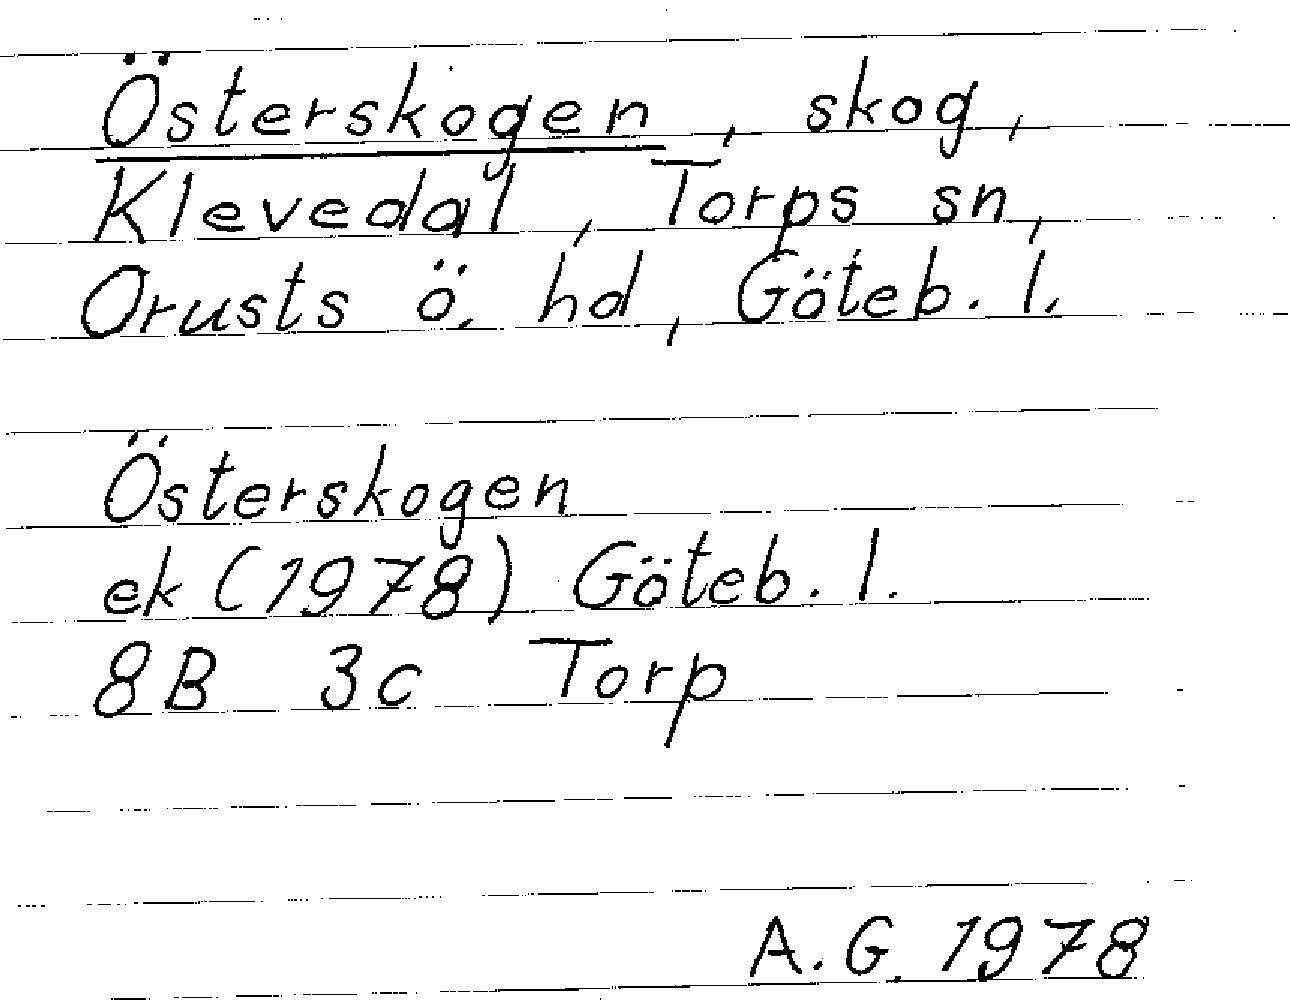 Österskogen, skog,
Klevedal, Torps sn,
Orusts ö. hd, Göteb. l.
Österskogen
ek (1978) Göteb. l.
8B 3c Torp
A.G. 1978